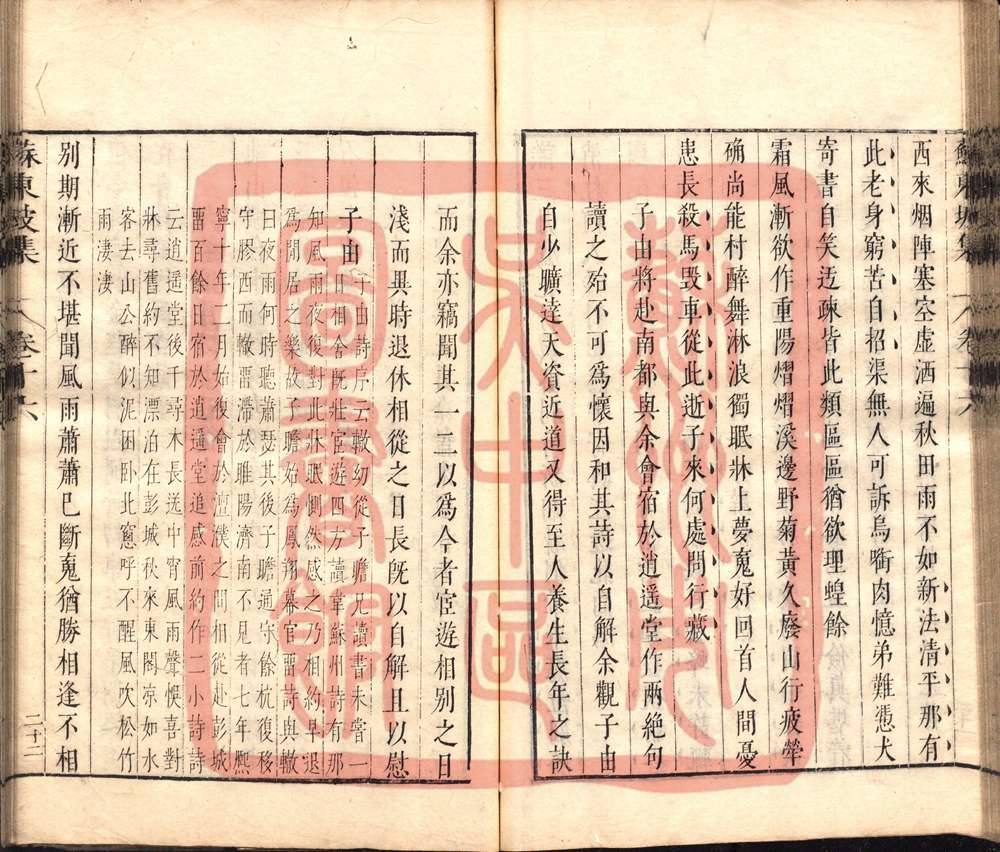 蘇東坡集　卷十六
西來烟陣塞空虛洒遍秋田雨不如新法清平那有
此老身窮苦自招渠無人可訴烏啣肉憶弟難憑犬
寄書自笑迂疎皆此類區區猶欲理蝗餘
霜風漸欲作重陽熠熠溪邊野菊黃久廢山行疲犖
确尚能村醉舞淋浪獨眠牀上夢魂好回首人間憂
患長殺馬毀車從此逝子來何處問行藏
子由將赴南都與余會宿於逍遙堂作兩絕句
讀之殆不可爲懷因和其詩以自解余觀子由
自少曠達天資近道又得至人養生長年之訣
而余亦竊聞其一二以爲今者宦遊相別之日
淺而異時退休相從之日長旣以自解且以慰
子由
子由詩序云轍幼從子瞻兄讀書未嘗一
日相舍旣壯宦遊四方讀韋蘇州詩有那
知風雨夜復對此牀眠惻然感之乃相約早退
爲閒居之樂故子瞻始爲鳳翔幕官畱詩與轍
曰夜雨何時聽蕭瑟其後子瞻通守餘杭復移
守膠西而轍滯於睢陽濟南不見者七年熈
寧十年二月始復會於澶濮之間相從赴彭城
畱百餘日宿於逍遥堂追感前約作二小詩詩
云逍遥堂後千尋木長送中宵風雨聲悞喜對
牀尋舊約不知漂泊在彭城秋來東閣凉如水
客去山公醉似泥困卧北窻呼不醒風吹松竹
雨淒淒
別期漸近不堪聞風雨蕭蕭已斷䰟猶勝相逢不相
蘇東坡集　卷十六　二十二
蘇州市
吳中區
圖書館